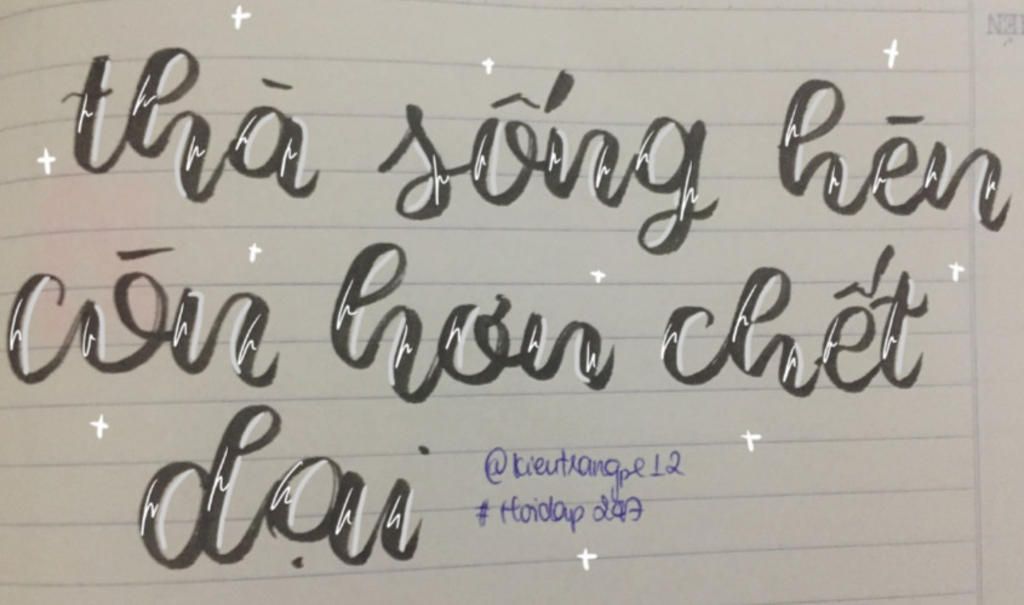 thà sống hèn
còn hơn chết
dại
@kieutrangpe12
#Hoidap247